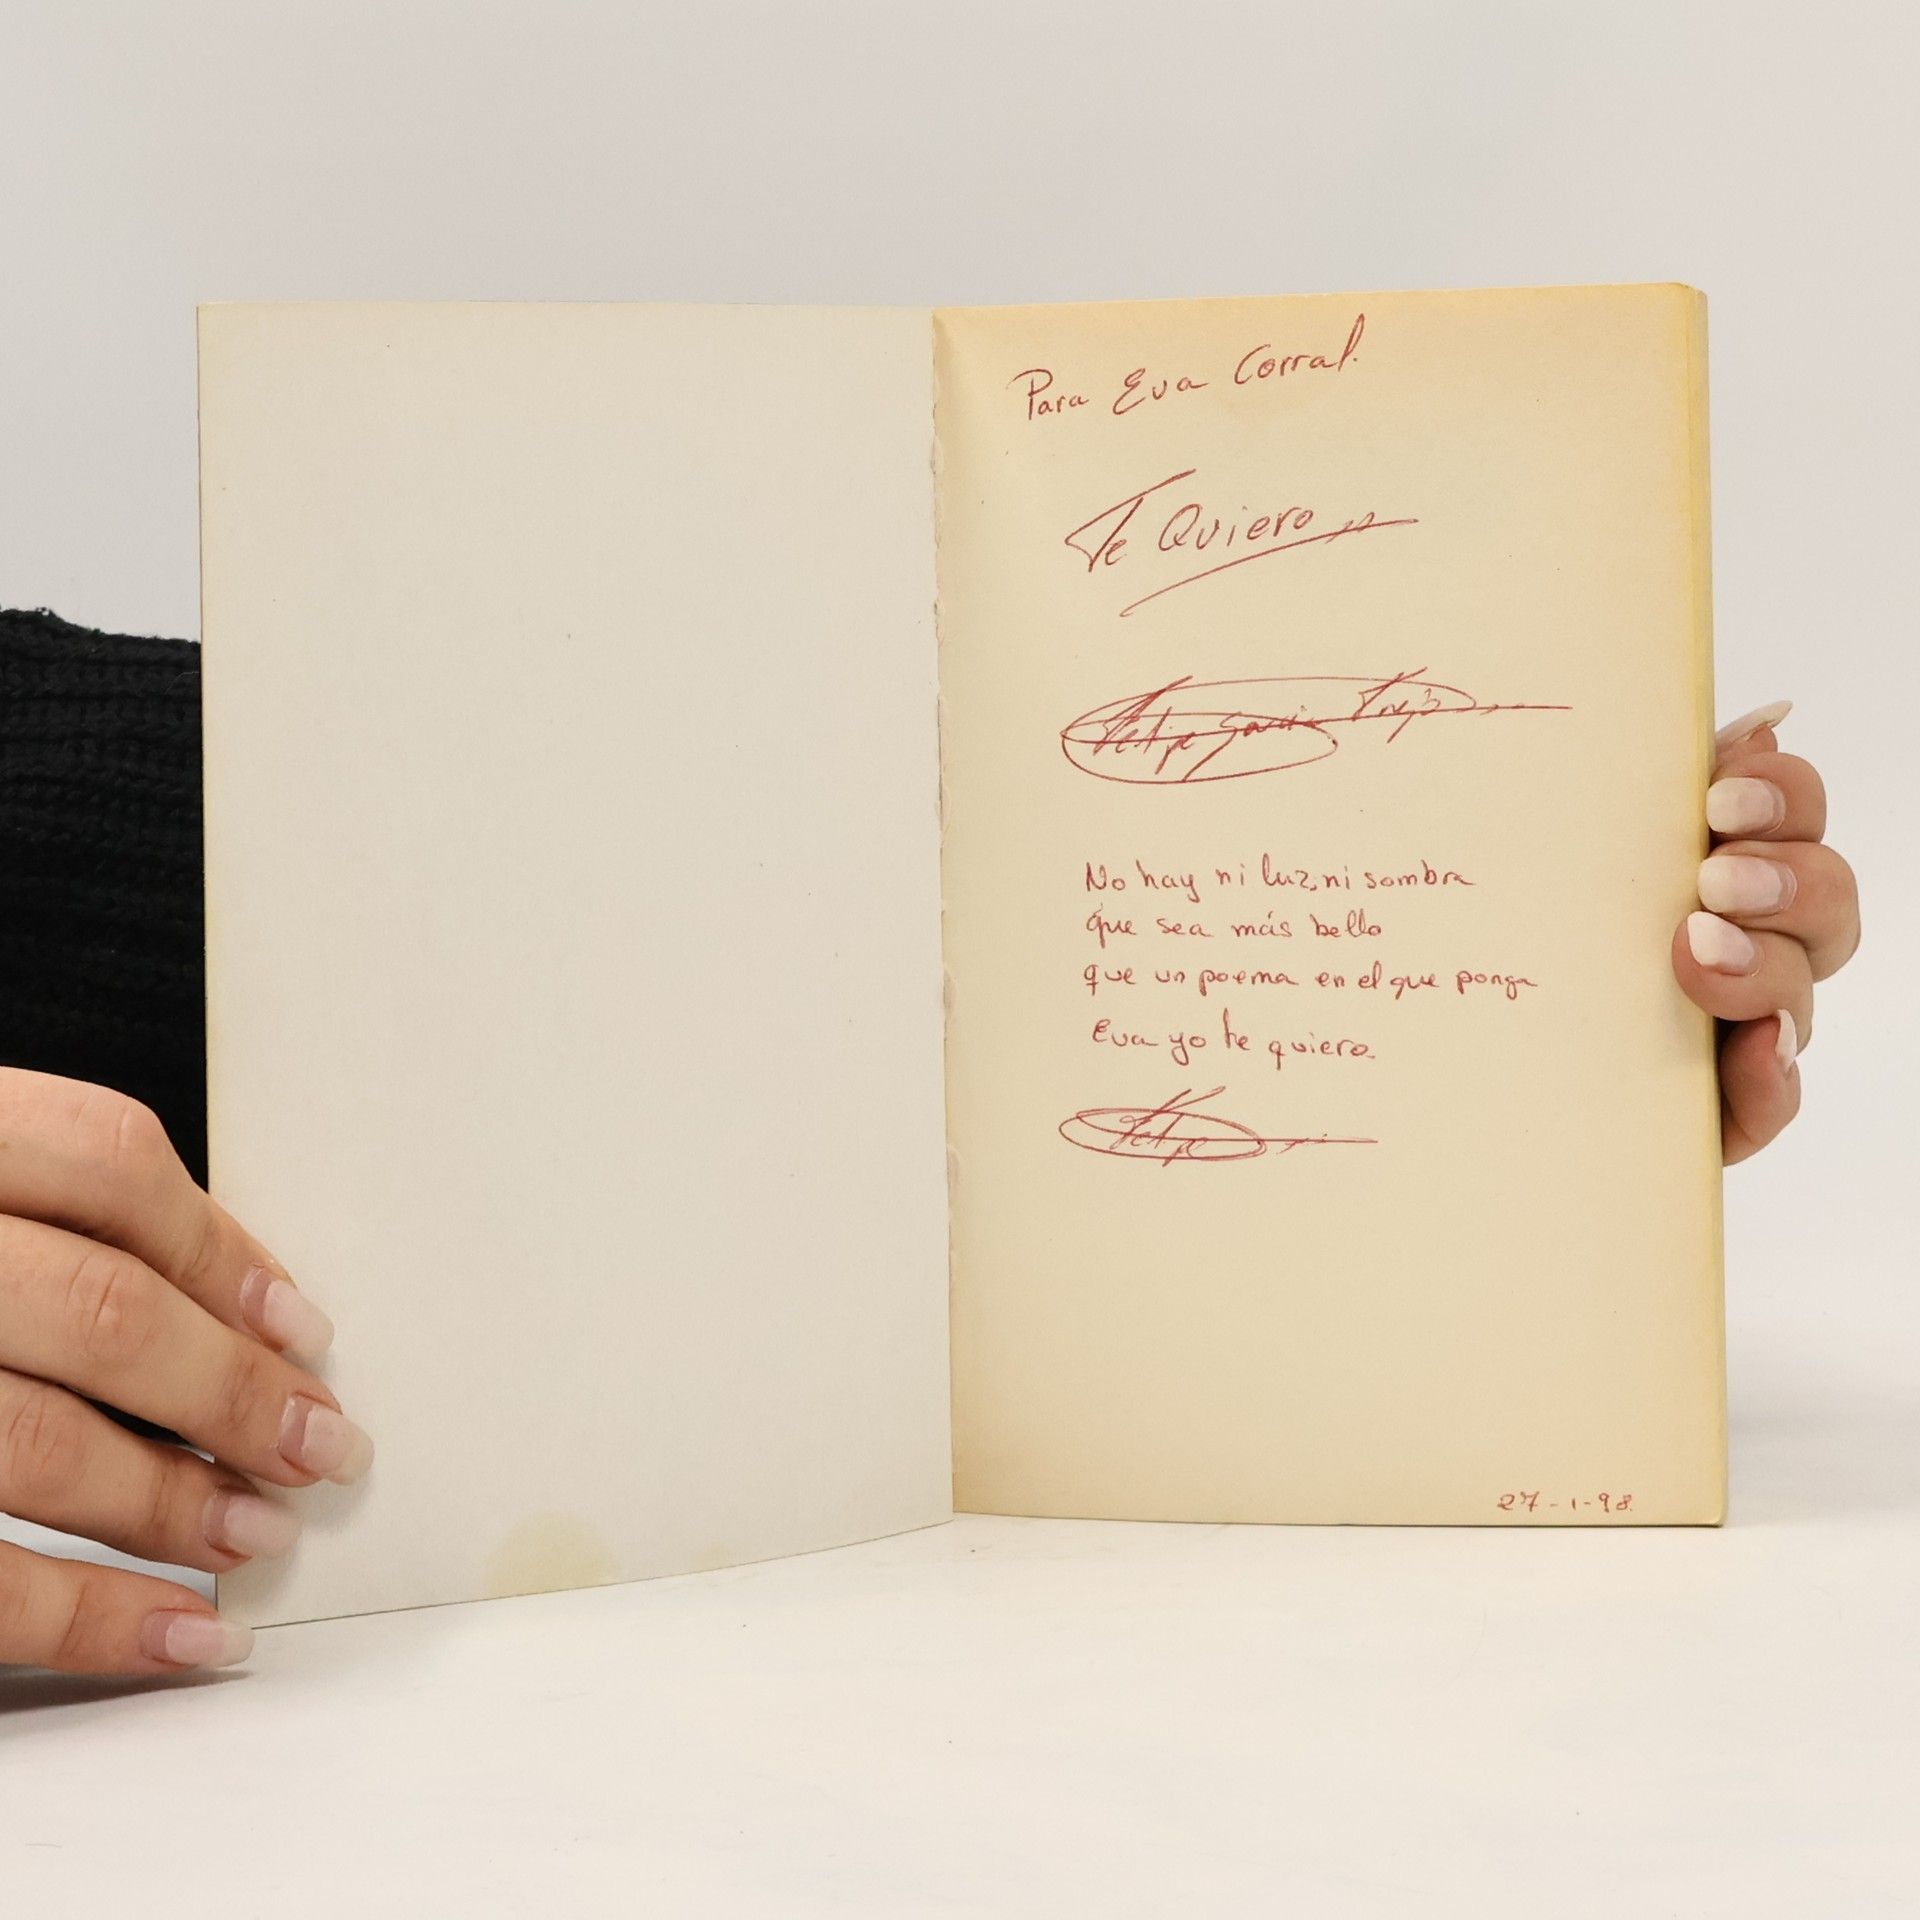 Para Eva Corral.
Te Quiero
Felipe Garcia
No hay ni luz, ni sombra
que sea más bello
que un poema en el que ponga
Eva yo te quiero
Felipe
27-1-98.